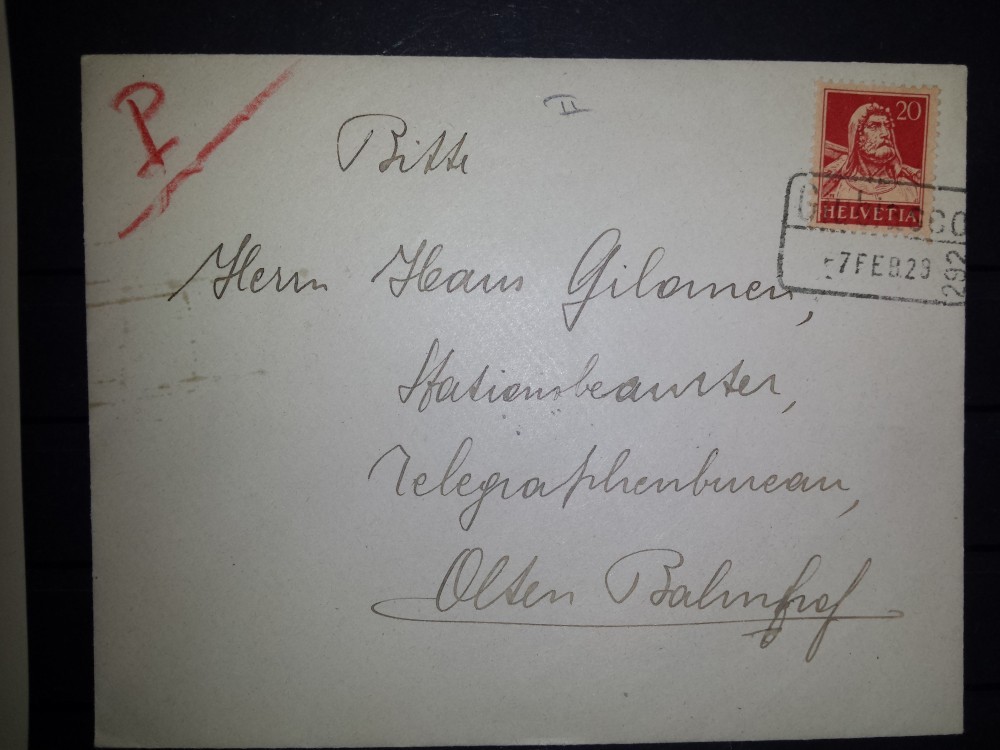 P
II
20
HELVETIA
-7 FEB. 23
292
Bitte
Herrn Hans Gilomen,
Stationsbeamter,
Telegraphenbureau,
Olten Bahnhof